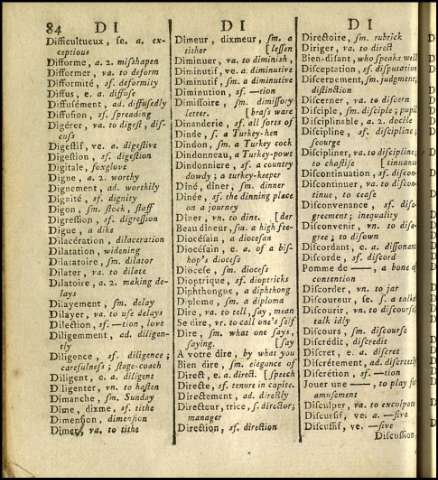 84 DI
DI
DI
Difficultueux, se. a. ex-
ceptious
Difforme, a. 2. mishapen
Difformer, va. to deform
Difformité, sf. deformity
Diffus, e. a. diffuse
Diffusément, ad. diffusedly
Diffusion, sf. spreading
Digérer, va. to digest, dis-
cuss
Digestif, ve. a. digestive
Digestion, sf. digestion
Digitale, foxglove
Digne, a. 2. worthy
Dignement, ad. worthily
Dignité, sf. dignity
Digon, sm. stock, staff
Digression, sf. digression
Digue, a dike
Dilacération, dilaceration
Dilatation, widening
Dilatatoire, sm. dilator
Dilater, va. to dilate
Dilatoire, a. 2. making de-
lays
Dilayement, sm. delay
Dilayer, va. to use delays
Dilection, sf. —tion, love
Diligemment, ad. diligen-
tly
Diligence, sf. diligence;
carefulness; stage-coach
Diligent, e. a. diligent
Diligenter, vn. to hasten
Dimanche, sm. Sunday
Dîme, dixme, sf. tithe
Dimension, dimension
Dîmer, va. to tithe
Dîmeur, dixmeur, sm. a
tither [lessen
Diminuer, va. to diminish,
Diminutif, ve. a. diminutive
Diminutif, sm. a diminutive
Diminution, sf. —tion
Dimissoire, sm. dimissory
letter, [brass ware
Dinanderie, sf. all sorts of
Dinde, s. a Turkey-hen
Dindon, sm. a Turkey cock
Dindonneau, a Turkey-pout
Dindonniere, sf. a country
dowdy; a turkey-keeper
Dîné, dîner, sm. dinner
Dînée, sf. the dinning place
on a journey
Dîner, vn. to dine. [der
Beau dîneur, sm. a high fee-
Diocésain, a diocesan
Diocésain, e. a. of a bis-
hop's diocess
Diocese, sm. diocess
Dioptrique, sf. dioptricks
Diphthongue, a diphthong
Diploma, sm. a diploma
Dire, va. to tell, say, mean
Se dire, vr. to call one's self
Dire, sm. what one says,
saying. [say
A votre dire, by what you
Bien dire, sm. elegance of
Direct, e. a. direct. [speech
Directe, sf. tenure in capite.
Directement, ad. directly
Directeur, trice, s. director;
manager
Direction, sf. direction
Directoire, sm. rubrick
Diriger, va. to direct
Bien-disant, who speaks well
Disceptation, sf. disputation
Discernement, sm. judgment,
distinction
Discerner, va. to discern
Disciple, sm. disciple;
Disciplinable, a. 2. docile
Discipline, sf. discipline;
scourge
Discipliner, va. to discipline;
to chastise [tinuance
Discontinuation, sf. discon-
Discontinuer, va. to discon-
tinue, to cease
Disconvenance, sf. disa-
greement; inequality
Disconvenir, vn. to disa-
gree; to disown
Discordant, e. a. dissonant
Discorde, sf. discord
Pomme de —, a bone of
contention
Discorder, vn. to jar
Discoureur, se. s. a talker
Discourir, vn. to discourse,
talk idly
Discours, sm. discourse
Discrédit, discredit
Discret, e. a. discret
Discrétement, ad. discreetly
Discrétion, sf. —tion
Jouer une —, to play for
amusement
Disculper, va. to exculpate
Discursif, ve. a. —sive
Discussif, ve. —sive
Discussion